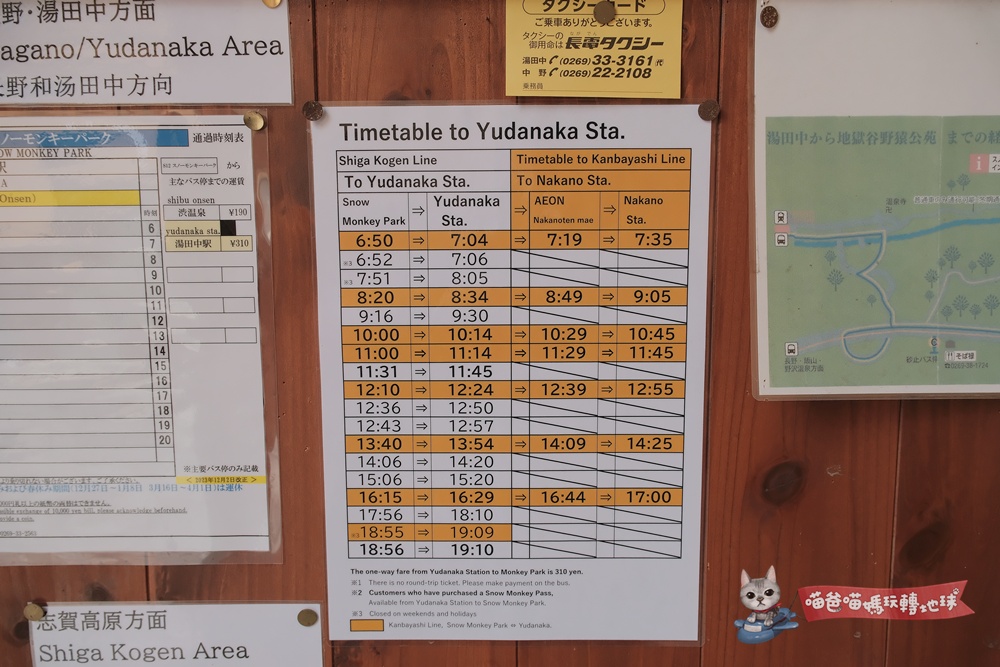 野・湯田中方面
agano/Yudanaka Area
野和汤田中方向
ご乗車ありがとうございます。
タクシーの
御用命は 長電タクシー
湯田中 (0269)33-3161(代)
中野 (0269)22-2108
乗務員
ノーモンキーパーク 通過時刻表
OW MONKEY PARK
から
主なバス停までの運賃
shibu onsen
渋温泉 ¥190
yudanaka sta.
湯田中駅 ¥310
Onsen)
時刻
6
7
8
9
10
11
12
13
14
15
16
17
18
19
20
※主要バス停のみ記載
志賀高原方面
Shiga Kogen Area
Timetable to Yudanaka Sta.
Shiga Kogen Line Timetable to Kanbayashi Line
To Yudanaka Sta. To Nakano Sta.
Snow Monkey Park ⇒ Yudanaka Sta. ⇒ AEON Nakanoten mae ⇒ Nakano Sta.
6:50 ⇒ 7:04 ⇒ 7:19 ⇒ 7:35
※3 6:52 ⇒ 7:06
※3 7:51 ⇒ 8:05
8:20 ⇒ 8:34 ⇒ 8:49 ⇒ 9:05
9:16 ⇒ 9:30
10:00 ⇒ 10:14 ⇒ 10:29 ⇒ 10:45
11:00 ⇒ 11:14 ⇒ 11:29 ⇒ 11:45
11:31 ⇒ 11:45
12:10 ⇒ 12:24 ⇒ 12:39 ⇒ 12:55
12:36 ⇒ 12:50
12:43 ⇒ 12:57
13:40 ⇒ 13:54 ⇒ 14:09 ⇒ 14:25
14:06 ⇒ 14:20
15:06 ⇒ 15:20
16:15 ⇒ 16:29 ⇒ 16:44 ⇒ 17:00
17:56 ⇒ 18:10
※3 18:55 ⇒ 19:09
18:56 ⇒ 19:10
The one-way fare from Yudanaka Station to Monkey Park is 310 yen.
※1 There is no round-trip ticket. Please make payment on the bus.
※2 Customers who have purchased a Snow Monkey Pass,
Available from Yudanaka Station to Snow Monkey Park.
※3 Closed on weekends and holidays
Kanbayashi Line, Snow Monkey Park ⇔ Yudanaka.
湯田中から地獄谷野猿公苑 までの
長野・飯山・
野沢温泉方面
そば処
喵爸喵媽玩轉地球